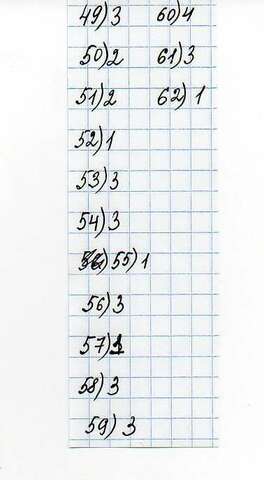 49) 3 60) 4
50) 2 61) 3
51) 2 62) 1
52) 1
53) 3
54) 3
55) 1
56) 3
57)
58) 3
59) 3